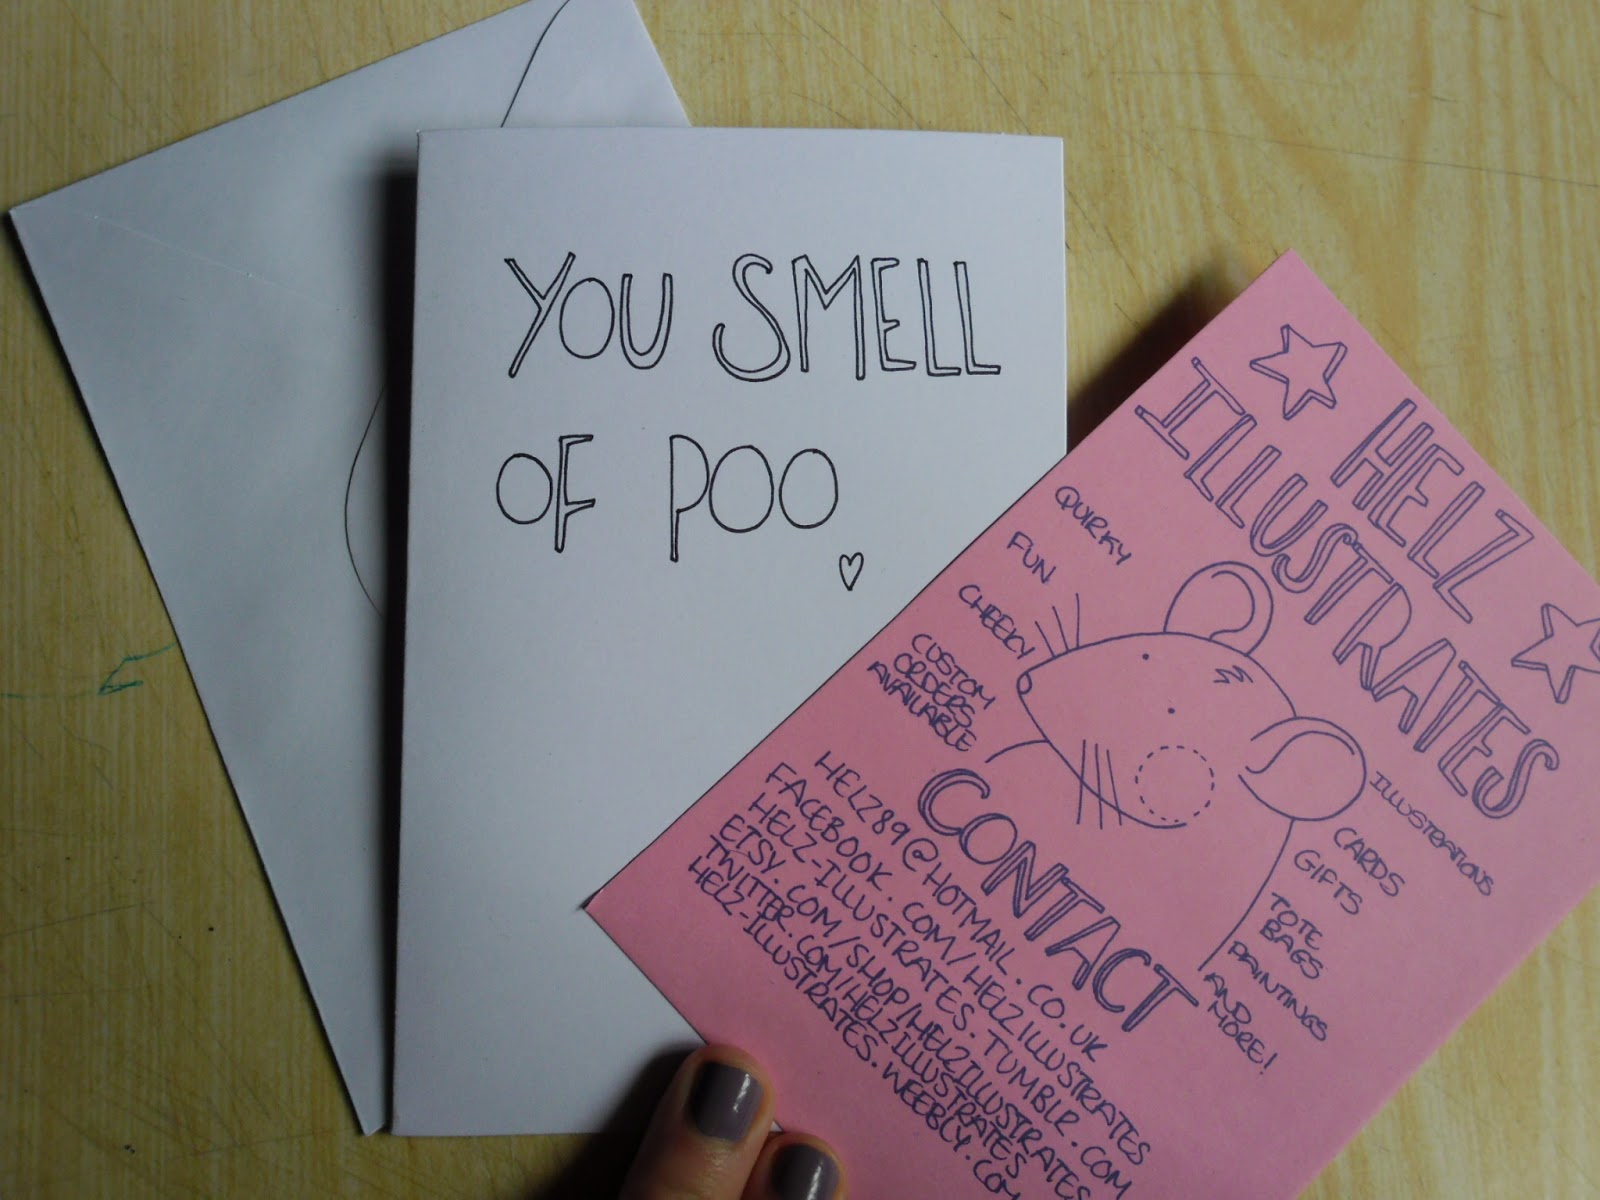 YOU SMELL
OF POO
HELZ
ILLUSTRATES
QUIRKY
FUN
CHEEKY
CUSTOM
ORDERS
AVAILABLE
ILLUSTRATIONS
CARDS
GIFTS
TOTE
BAGS
PAINTINGS
AND
MORE!
CONTACT
HELZ89@HOTMAIL.CO.UK
FACEBOOK.COM/HELZILLUSTRATES
HELZ-ILLUSTRATES.TUMBLR.COM
ETSY.COM/SHOP/HELZILLUSTRATES
TWITTER.COM/HELZILLUSTRATES
HELZ-ILLUSTRATES.WEEBLY.COM